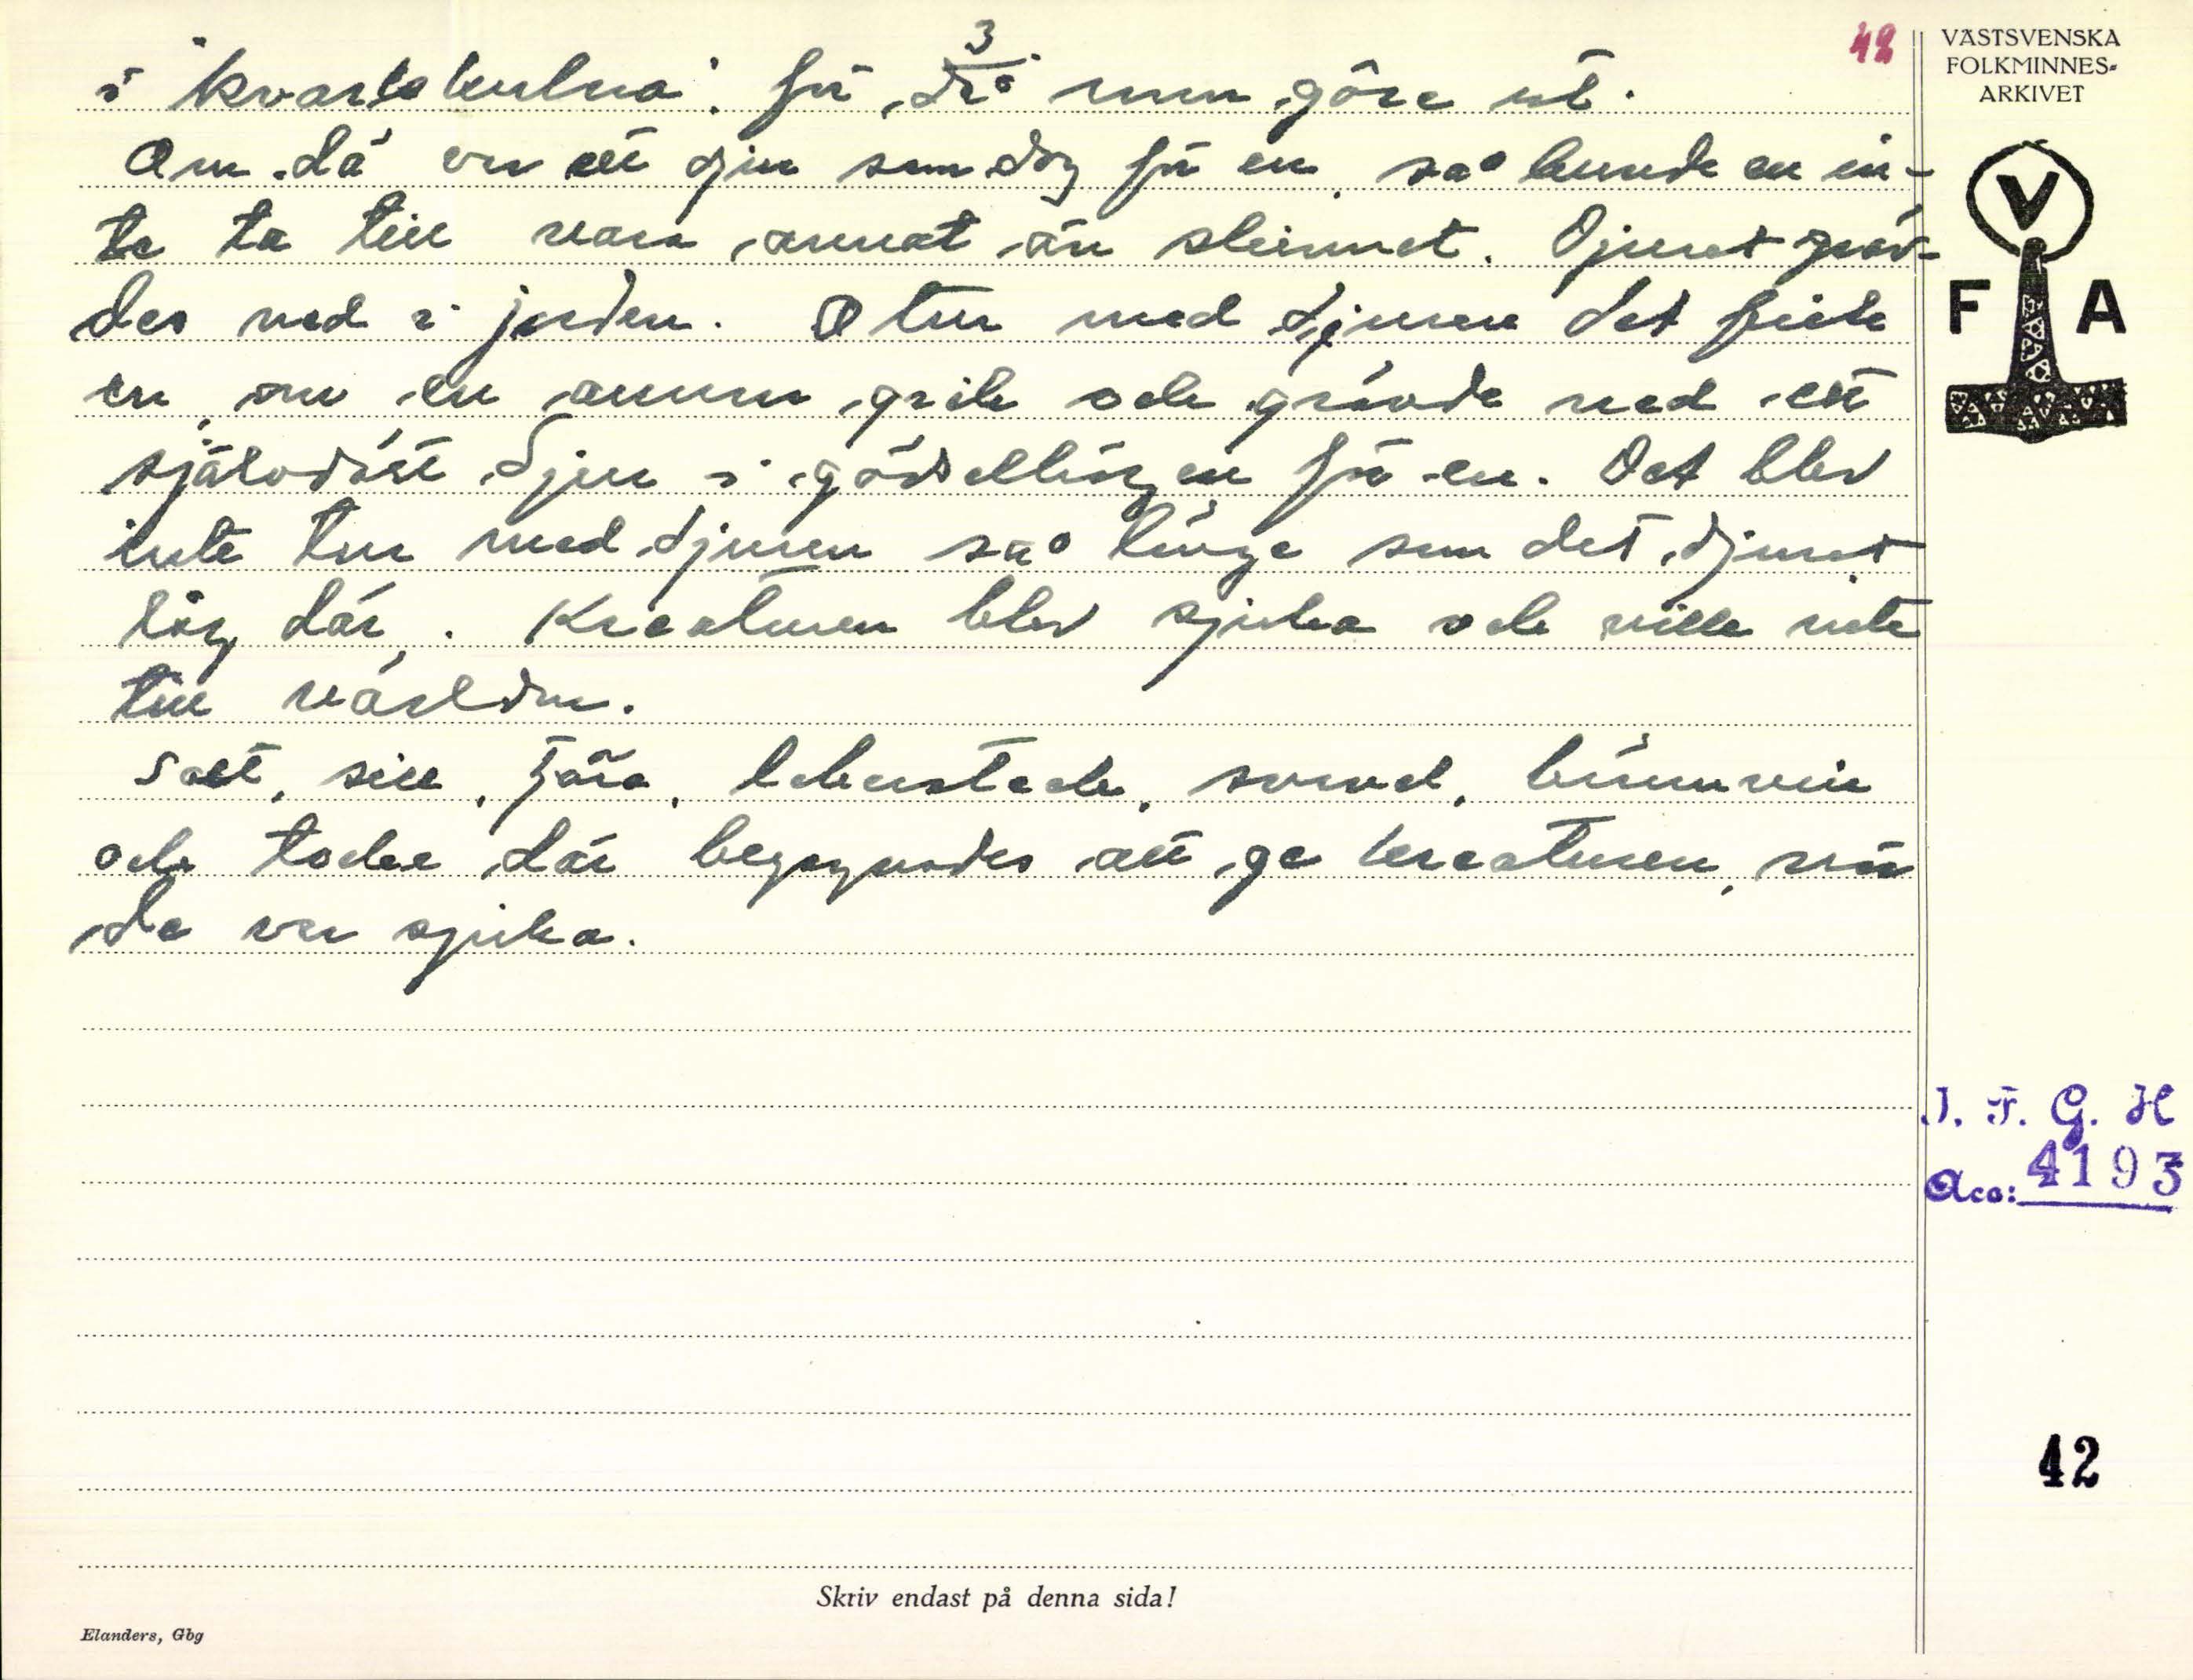 42
VÄSTSVENSKA
FOLKMINNES-
ARKIVET
V
F A
3
i "kvarlekulna". för drå unn göre ut.
Om dä var ett djur som dog för en, så kunde en in-
te ta till vara annat än skinnet. Djuret gräv-
des ned i jorden. Otur med djuren det fick
en, om en annan gick och grävde ned ett
självdött djur i gödselhögen för en. Det blev
inte tur med djuren så länge som det djuret
låg där. Kreaturen blev sjuka och ville inte
till världen.
Salt, sill, tjära, svavel, brännvin
och tocke där begagnades att ge kreaturen, när
de var sjuka.
I. F. G. H
Acc: 4193
42
Skriv endast på denna sida!
Elanders, Gbg